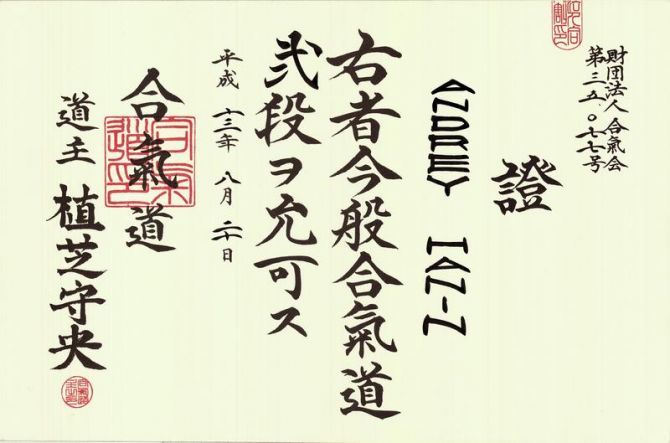 財団法人合氣会
第三五.〇七七号
證
ANDREY HANIN
右者今般合氣道
弐段ヲ允可ス
平成 十三年 八月 二十日
合氣道
道主 植芝守央